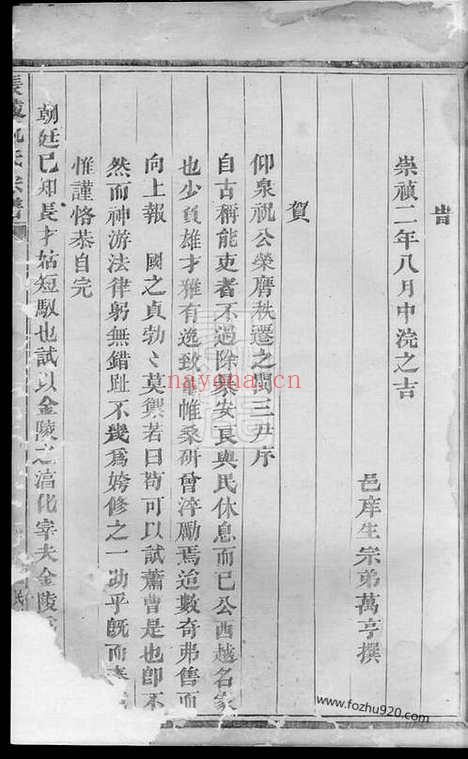 旹
崇禎二年八月中浣之吉
邑庠生宗弟萬亨撰
賀
仰泉祝公榮膺秩遷之閩三尹序
自古稱能吏者不過除暴安良與民休息而已公西越名家
也少負雄才雅有逸致董帷桑研曾淬勵焉迨數奇弗售而
向上報 國之貞勃〻莫禦若曰苟可以試蕭曹是也卽不
然而神游法律躬無錯趾不幾爲姱修之一助乎旣而
惟謹恪恭自完
朝廷已知長才姑短馭也試以金陵之滈化宰夫金陵
氏宗譜
nayona.cn
www.fozhu920.com